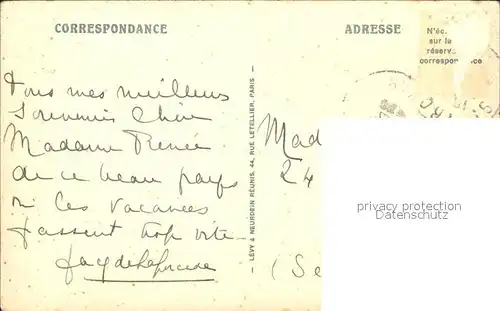 CORRESPONDANCE
ADRESSE
N'éc
sur la
réserv
correspon ce
Tous mes meilleurs
Souvenirs Chère
Madame Renée
de ce beau pays
où les vacances
passent trop vite
LÉVY & NEURDEIN RÉUNIS, 44, RUE LETELLIER, PARIS
Mad
24
(Se
privacy protection
Datenschutz